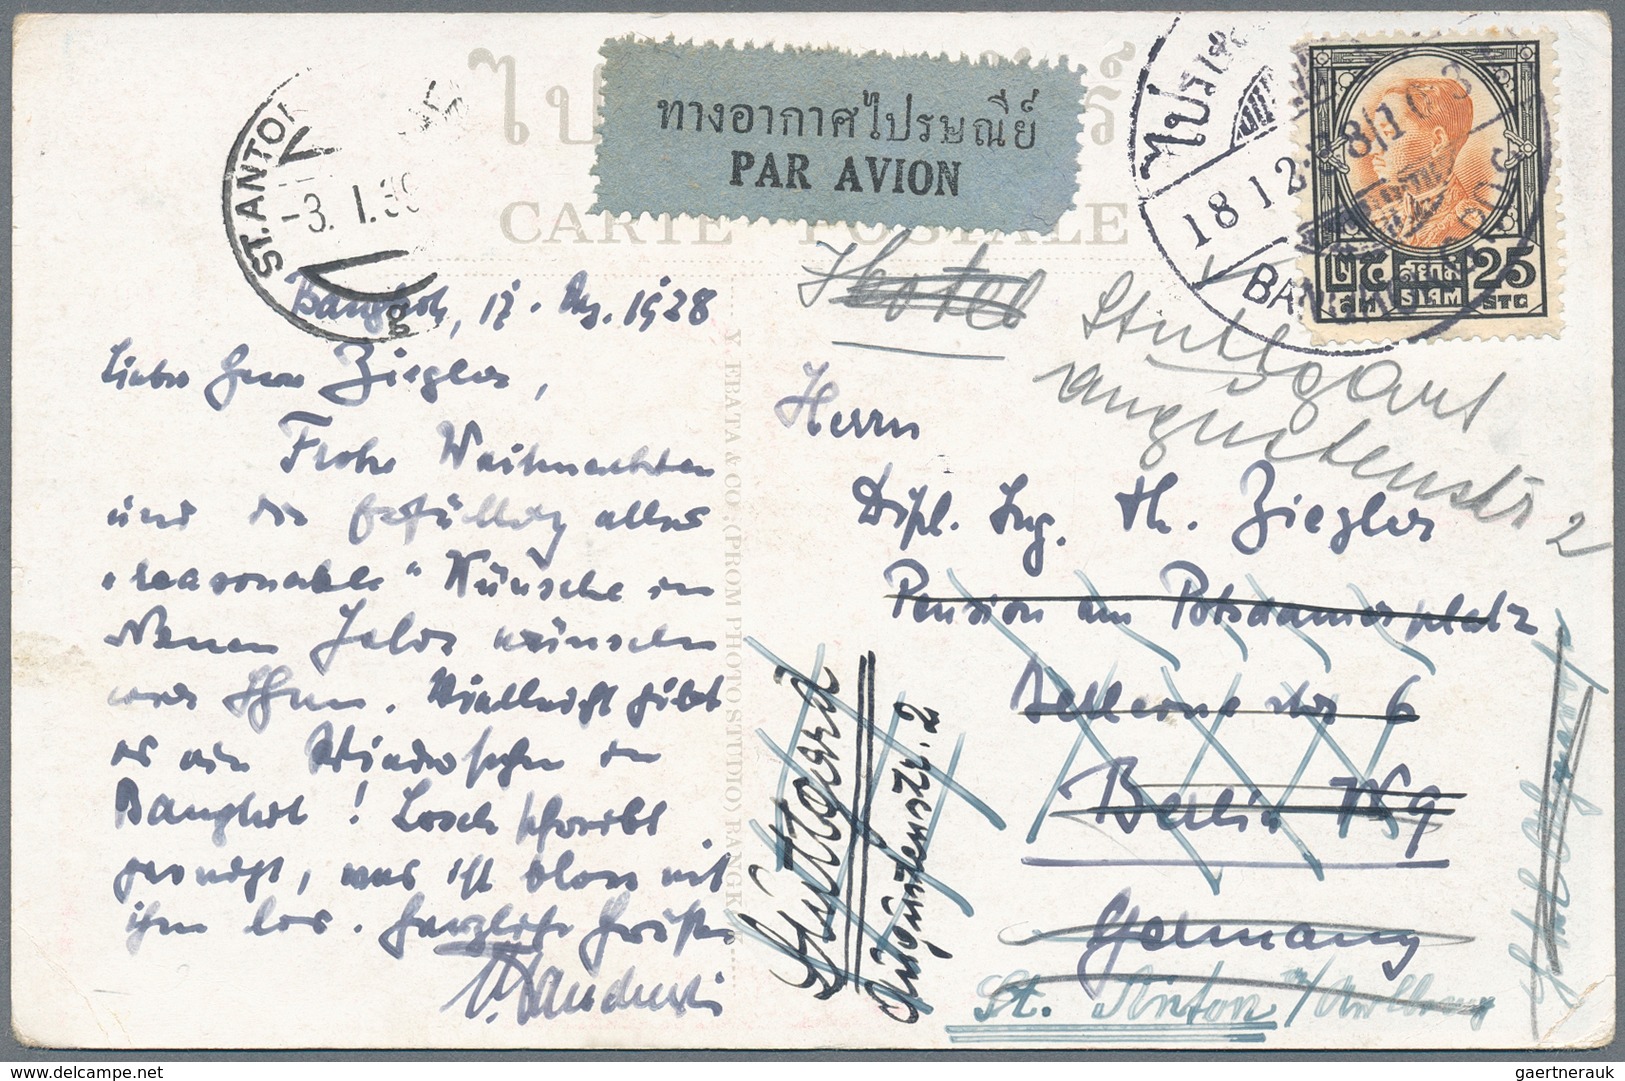 ทางอากาศไปรษณีย์
PAR AVION
CARTE POSTALE
ST. ANTON
-3. I. 3
18 12
BANGKOK
สยาม
SIAM
25
STG
Hotel
Stuttgart
Augustenstr 2
Bangkok, 17. Dez. 1928
Lieber Herr Ziegler,
Frohe Weihnachten
und die Erfüllung aller
"reasonable" Wünsche im
Neuen Jahr wünschen
wir Ihnen. Vielleicht gibts
es ein Wiedersehen in
Bangkok! Losch schreibt
gar nicht, was ist blos mit
ihm los. Herzliche Grüsse
Y. EBATA & CO., (PROM PHOTO STUDIO) BANGK
Herrn
Dipl. Ing. Th. Ziegler
Pension am Potsdamerplatz
Bellevue str 6
Berlin W9
Germany
St. Anton a/Arlberg
Stuttgart
Augustenstr. 2
www.delcampe.net
gaertnerauk